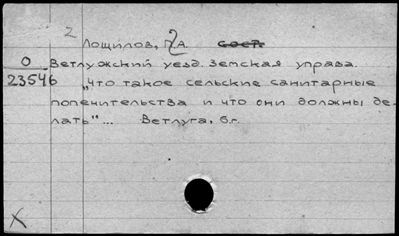 2
Лощилов, П.А. сост.
О Ветлужский уезд. Земская управа.
23546 „Что такое сельские санитарные
попечительства и что они должны де-
лать"... Ветлуга, б.г.
X